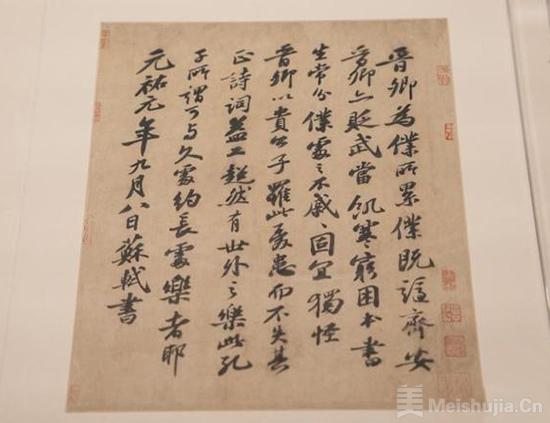 晉卿為僕所累僕既謫齊安
晉卿亦貶武當飢寒窮困本書
生常分僕處之不戚〻固宜獨怪
晉卿以貴公子罹此憂患而不失其
正詩詞益工超然有世外之樂此孔
子所謂可与久處約長處樂者耶
元祐元年九月八日蘇軾書
美 Meishujia.Cn